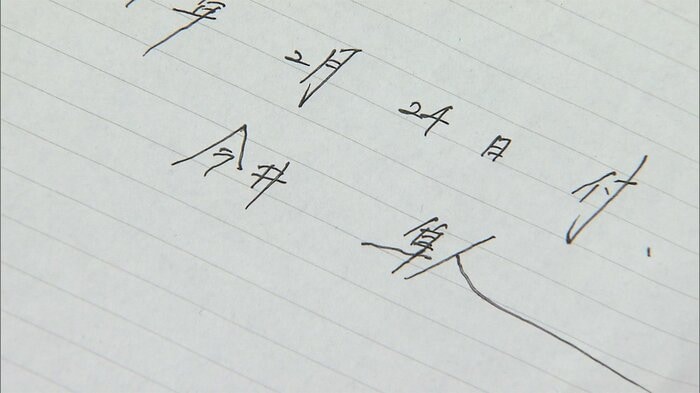 年 2月 24日 付、
今井 隼人